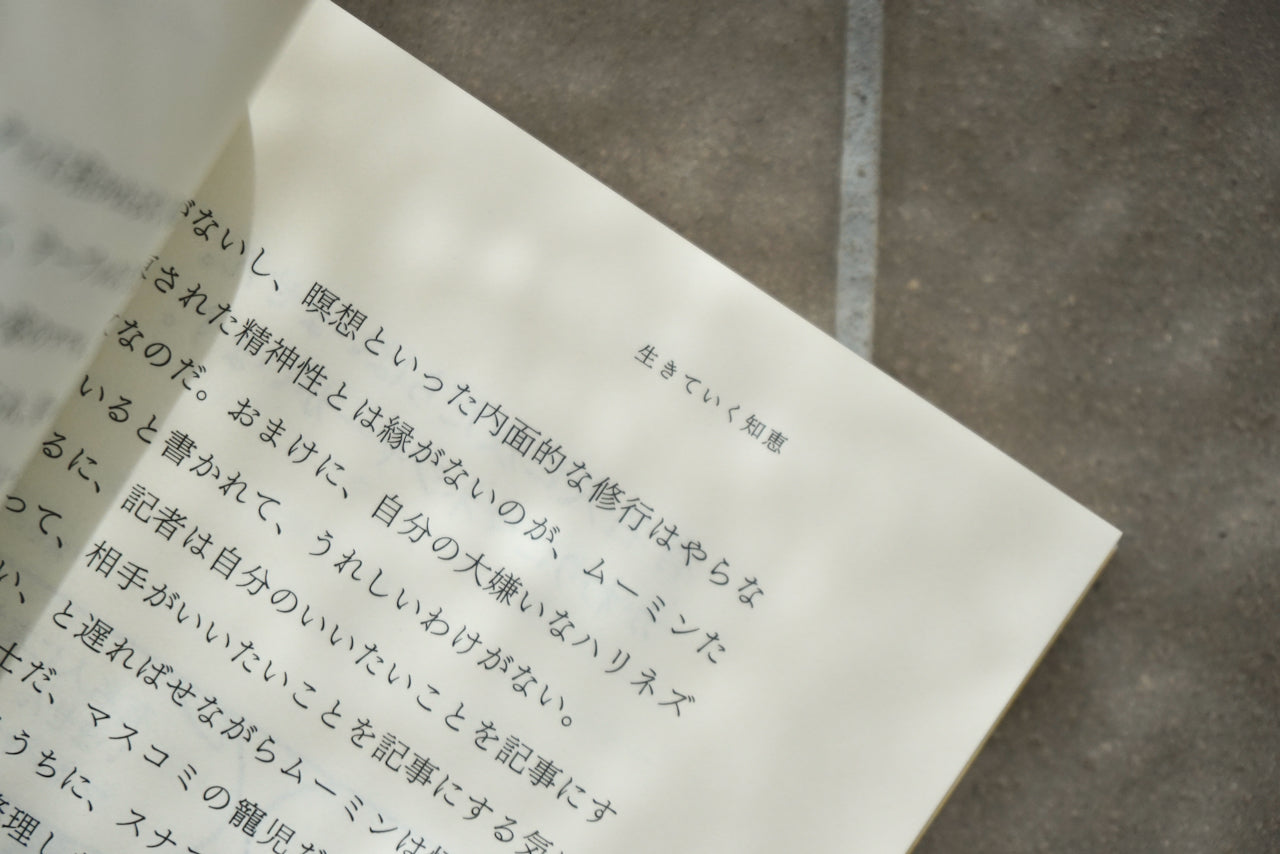 生きていく知恵
がないし、瞑想といった内面的な修行はやらな
された精神性とは縁がないのが、ムーミンた
なのだ。おまけに、自分の大嫌いなハリネズ
いると書かれて、うれしいわけがない。
るに、記者は自分のいいたいことを記事にす
って、相手がいいたいことを記事にする気
い、と遅ればせながらムーミンは
だ、マスコミの寵児だ
うちに、スナ
理し